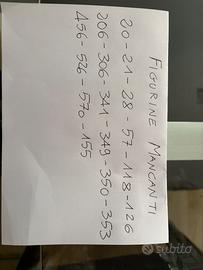 FIGURINE MANCANTI
20 - 21 - 28 - 57 - 118 - 126
206 - 306 - 341 - 349 - 350 - 353
456 - 526 - 570 - 155
subito